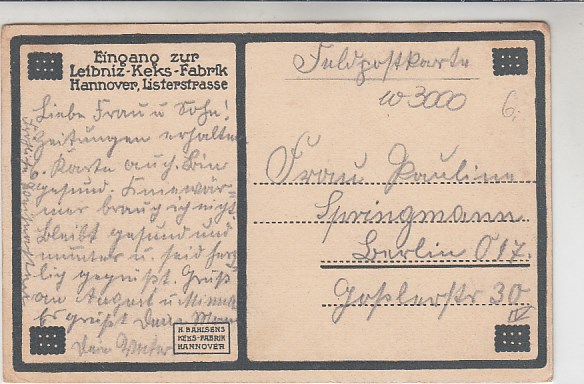 Eingang zur
Leibniz-Keks-Fabrik
Hannover, Listerstrasse
Liebe Frau u Sohn!
Zeitungen erhalten
6. Karte auch. Bin
gesund. Kniewär-
mer brauch ich nicht.
Bleibt gesund und
munter u. seid herz-
lich gegrüßt. Gruß
an August u Minna
Es grüßt Dein Mann
Dein Vater
H. BAHLSENS
KEKS-FABRIK
HANNOVER
Feldpostkarte
W 3000
6,
Frau Pauline
Springmann
Berlin O 17.
Goßlerstr 30
IV